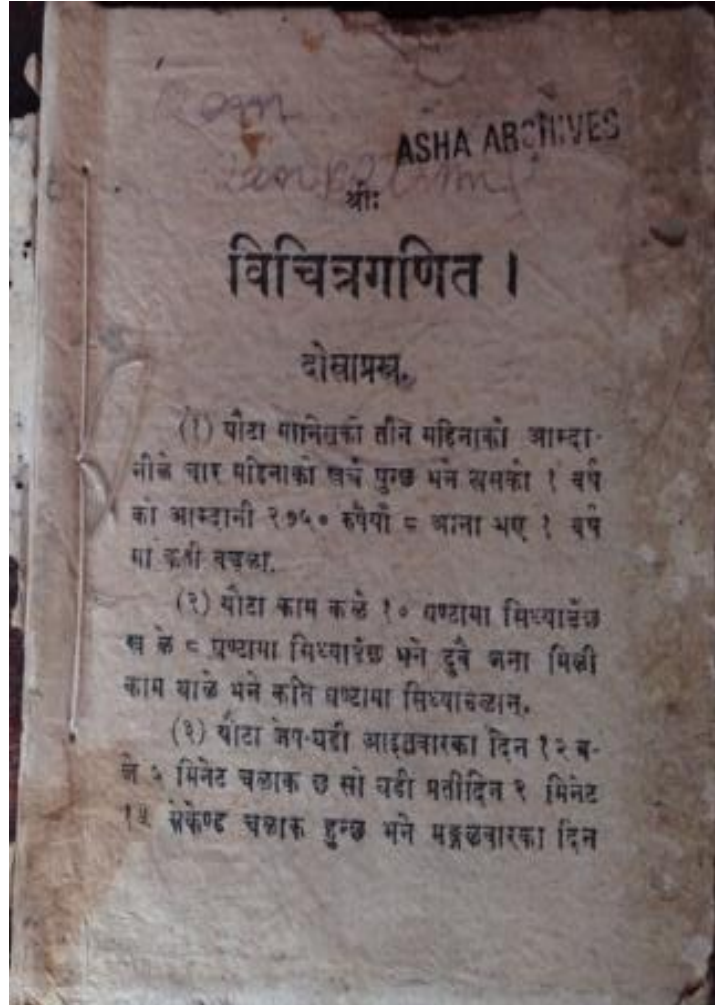 ASHA ARCHIVES
श्रीः
विचित्रगणित ।
दोस्राप्रस्न.
(१) यौटा मानिसको तीन महिनाको आम्दा-
नीले चार महिनाको खर्च पुग्छ भने उसको १ वर्ष
को आम्दानी २७५० रुपैयाँ ८ आना भए १ वर्ष
मा कती बचला.
(२) यौटा काम कले १० घण्टामा सिध्याउँछ
ख ले ८ घण्टामा सिध्याउँछ भने दुवै जना मिली
काम थाले भने कति घण्टामा सिध्याउलान्.
(३) यौटा जेप-घडी आइतवारका दिन १२ ब-
जे ५ मिनेट चलाक छ सो घडी प्रतीदिन २ मिनेट
१५ सेकेण्ड चलाक हुन्छ भने मङ्गलवारका दिन